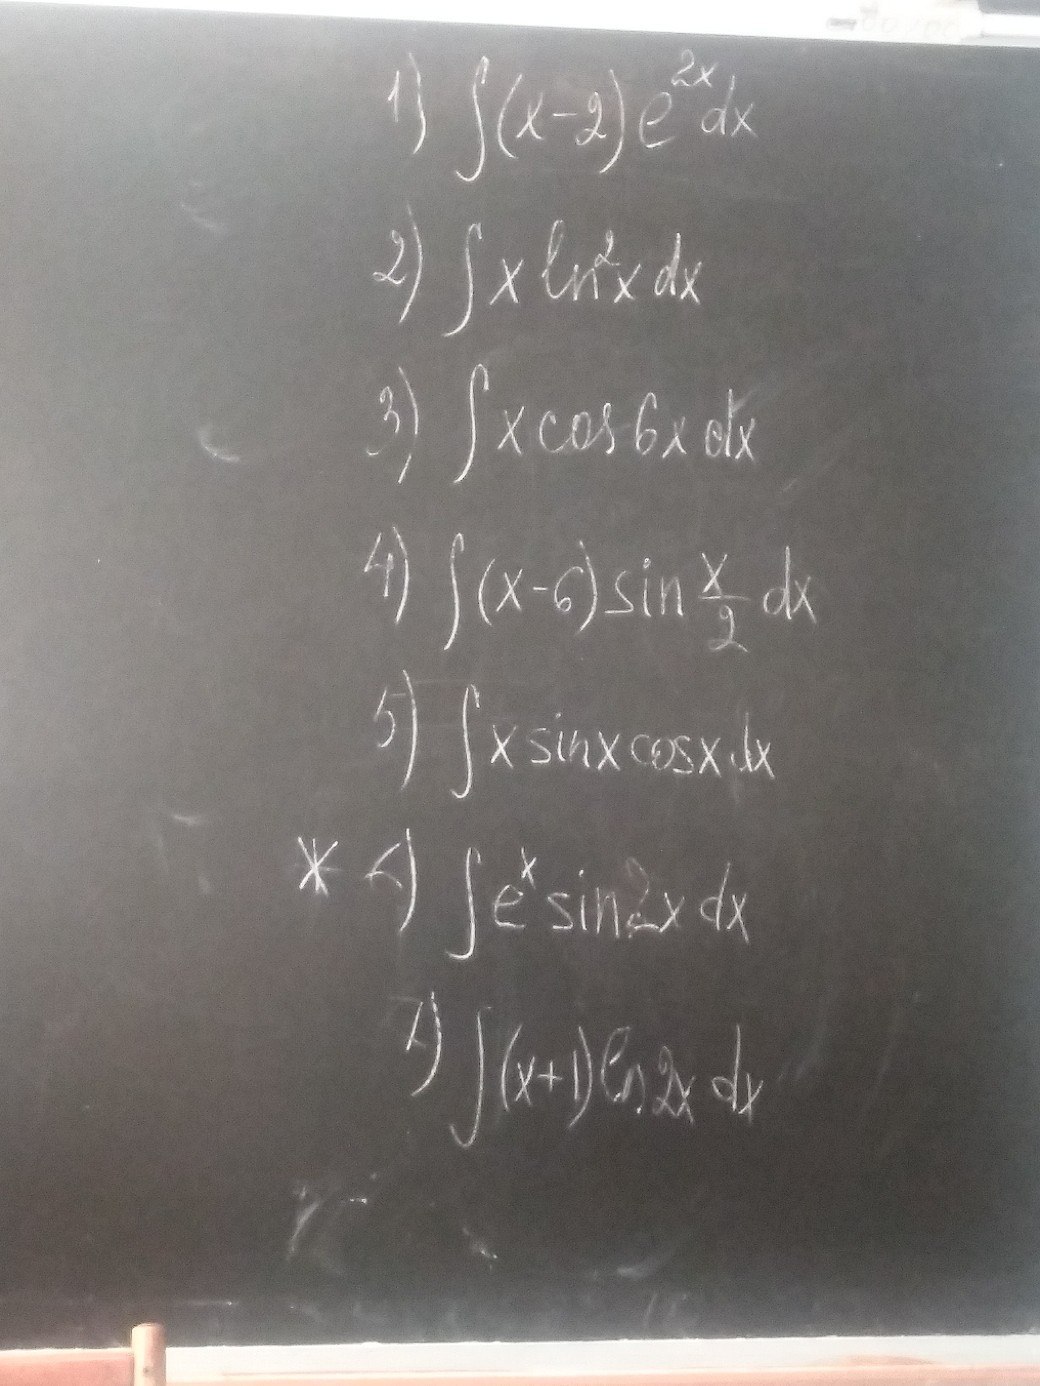 1) ∫(x-2)e^{2x}dx
2) ∫x ln²x dx
3) ∫x cos 6x dx
4) ∫(x-6) sin x/2 dx
5) ∫x sinx cosx dx
* 6) ∫e^x sin2x dx
7) ∫(x+1) ln 2x dx